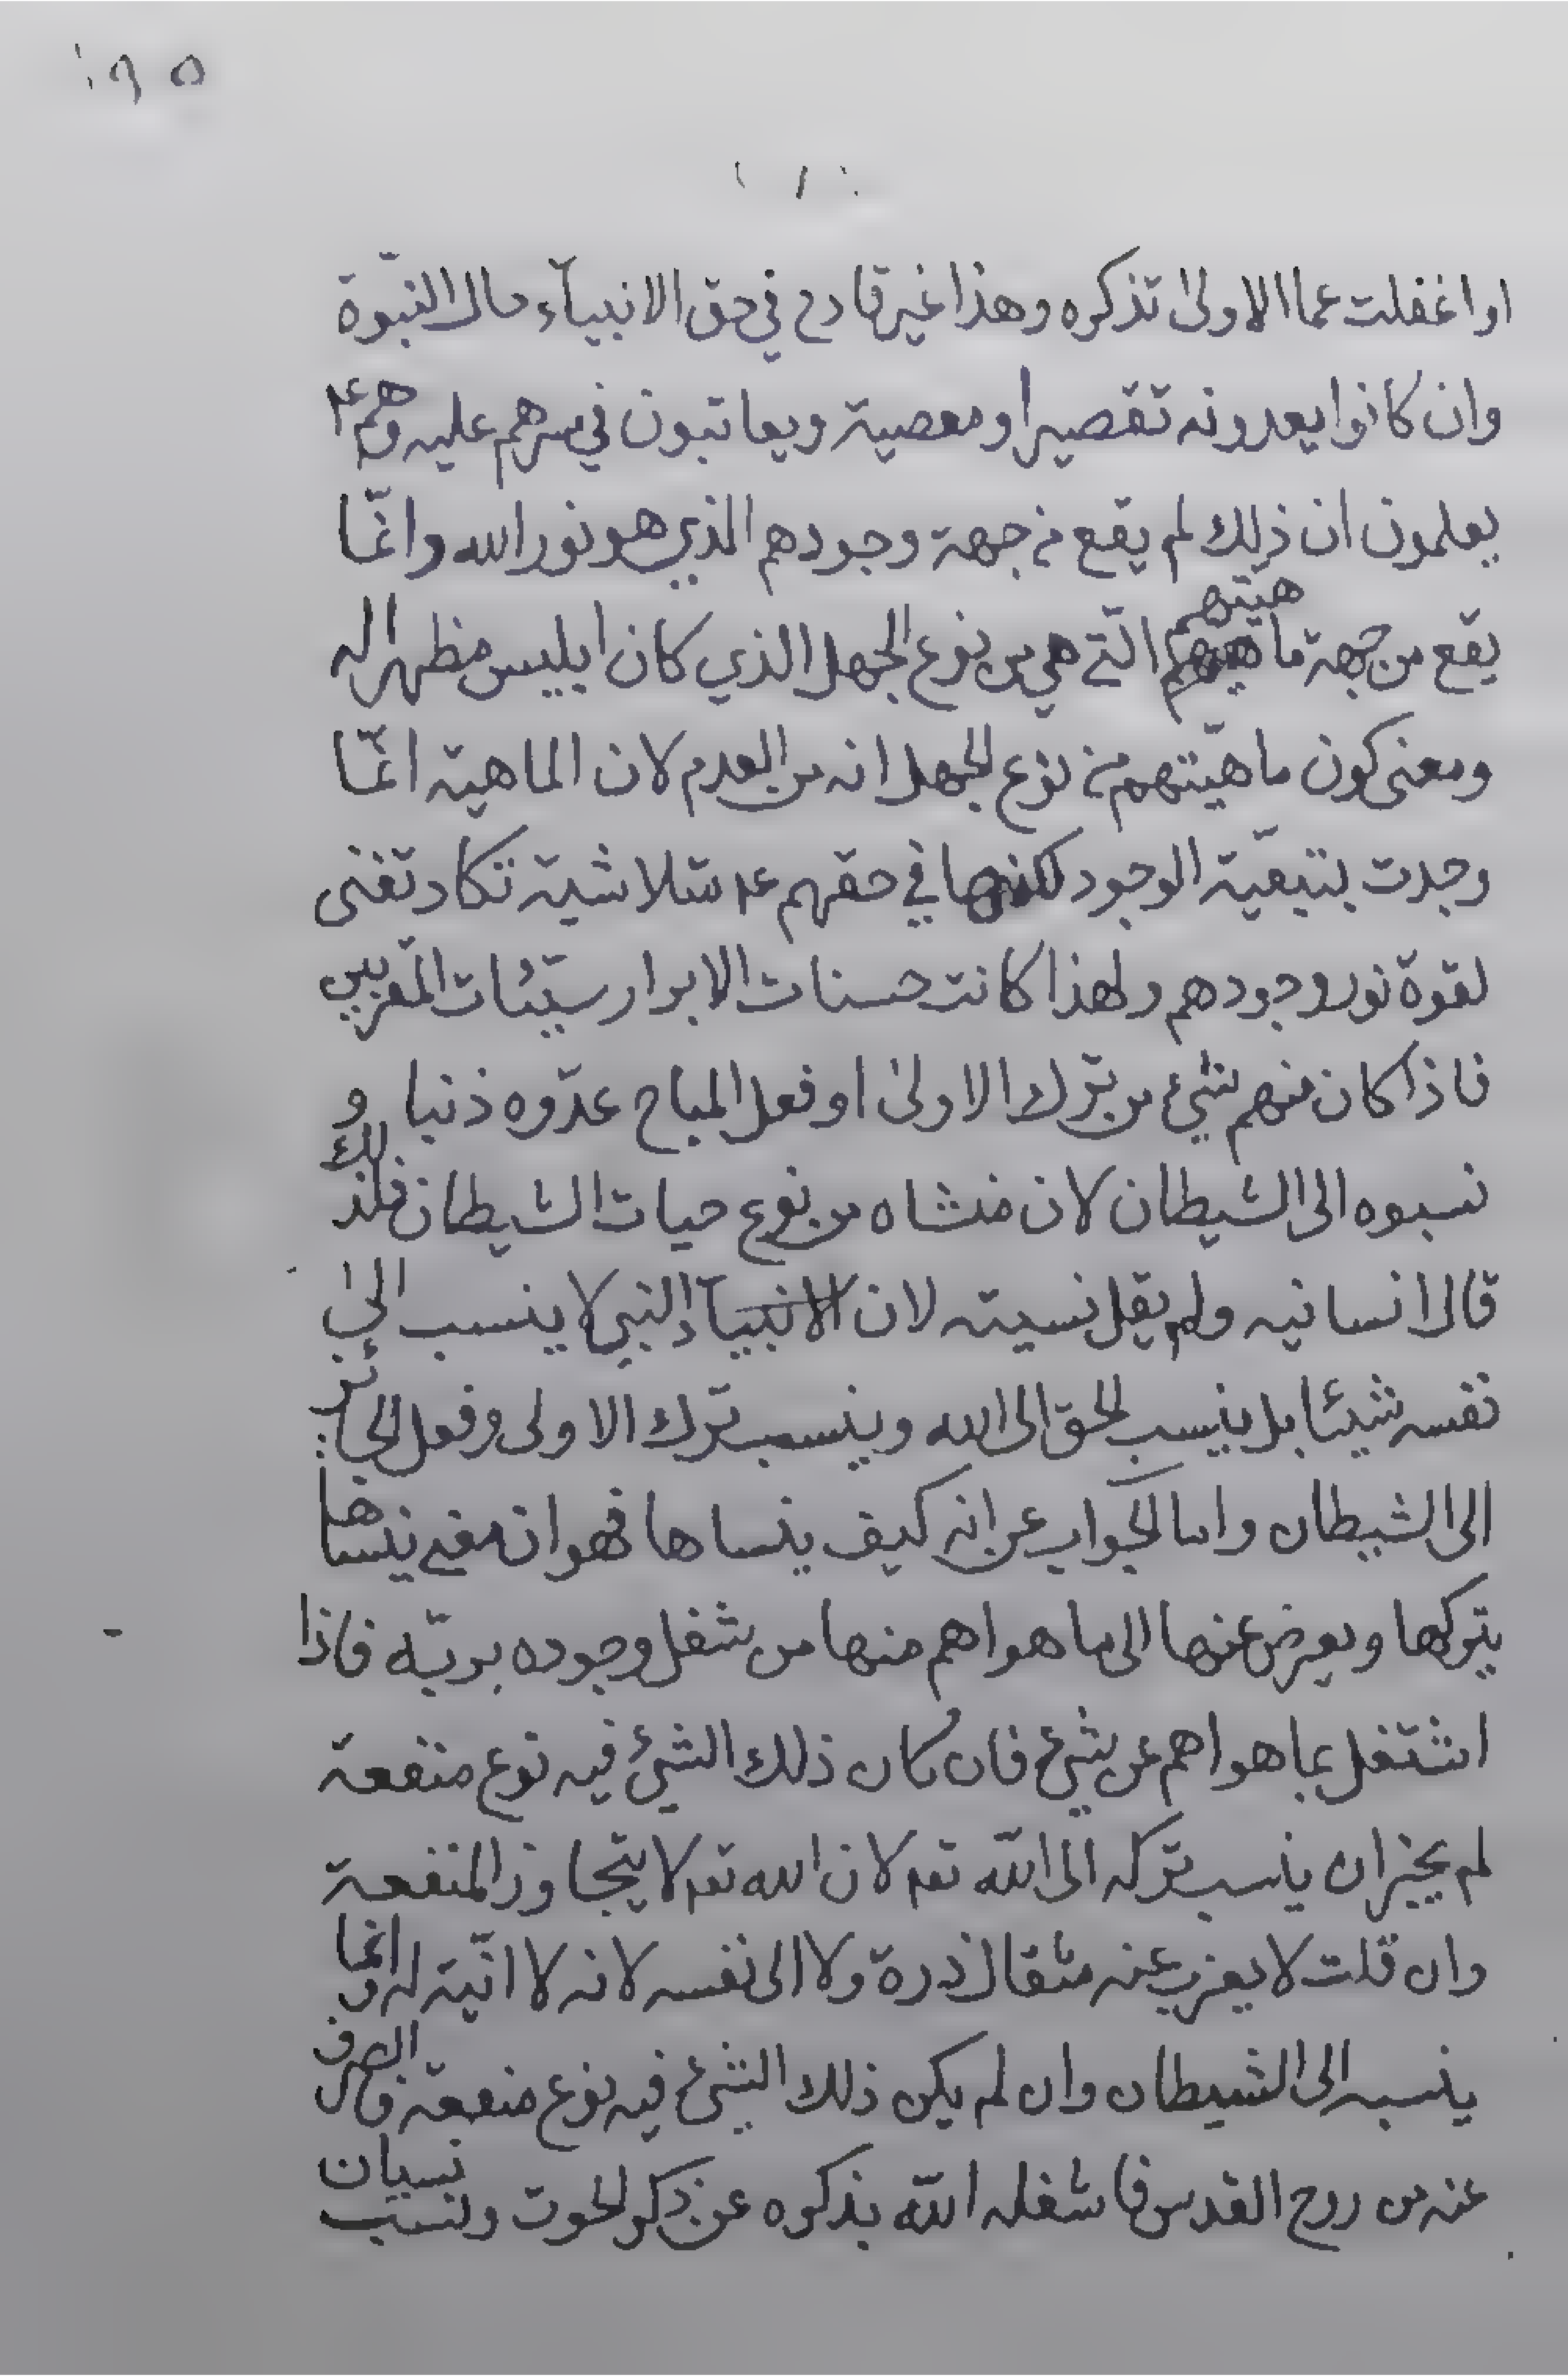 ١٩٥
او اغفلت عما الاولى تذكره وهذا غير قادح في حق الانبيآء حال النبّوة
وان كانوا يعدونه تقصيرا ومعصية ويعاتبون في سرهم عليه وهم ع
يعلمون ان ذلك لم يقع من جهة وجودهم الذي هو نور الله وانمّا
يقع من جهة ماهيتهم الّتي هي من نوع الجهل الذي كان ابليس مظهرا له
ومعنى كون ماهيّتهم من نوع الجهل انه من العدم لان الماهية انمّا
وجدت بتبعيّة الوجود لكنها في حقهم ع متلاشية تكاد تفنى
لقوة نور وجودهم ولهذا كانت حسنات الابرار سيّئات المقّربين
فاذا كان منهم شيء من ترك الاولى او فعل المباح عدّوه ذنبا و
نسبوه الى الشيطان لان منشاه من نوع حيات الشيطان فلذلك
قال انسانيه ولم يقل نسيته لان النبي لا ينسب الى
نفسه شيئا بل ينسب الحق الى الله وينسب ترك الاولى وفعل الجائز
الى الشيطان واما الجواب عن انه كيف ينساها فهو ان معنى ينساها
يتركها ويعرض عنها الى ما هو اهم منها من شغل وجوده بربّه فاذا
اشتغل بما هو اهم عن شيء فان كان ذلك الشيء فيه نوع منفعة
لم يجز ان ينسب تركه الى الله تعه لان الله تعه لا يتجاوز المنفعة
وان قلت لا يعزب عنه مثقال ذرة ولا الى نفسه لانه لا انّية له وانما
ينسبه الى الشيطان وان لم يكن ذلك الشيء فيه نوع منفعة فالصرف
عنه من روح القدس فاشغله الله بذكره عن ذكر الحوت ونسب نسيان